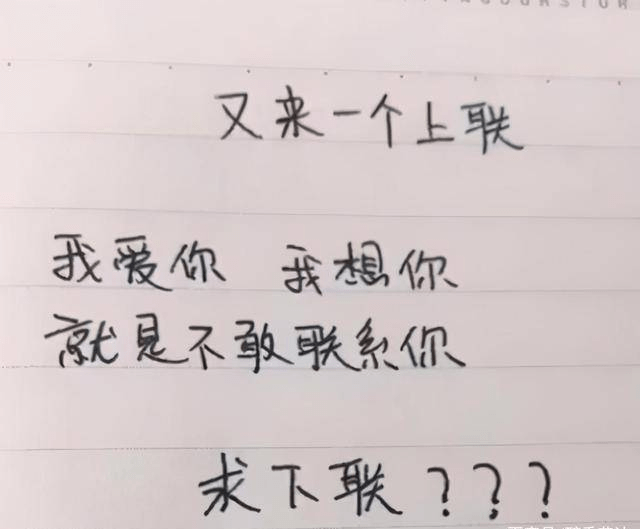 又来一个上联
我爱你 我想你
就是不敢联系你
求下联???